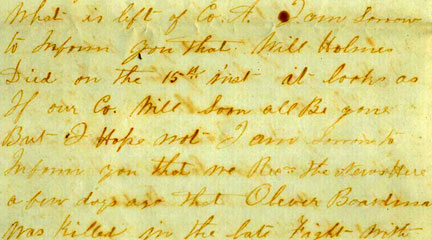 What is left of Co. A. I am Sorrow
to Inform you that Will Holmes
Died on the 15th inst it looks as
If our Co. Will Soon all Be gone
But I Hope not I am Sorrow to
Inform you that we the News Here
a few days ago that Olever Boardma
was Killed in the late Fight with